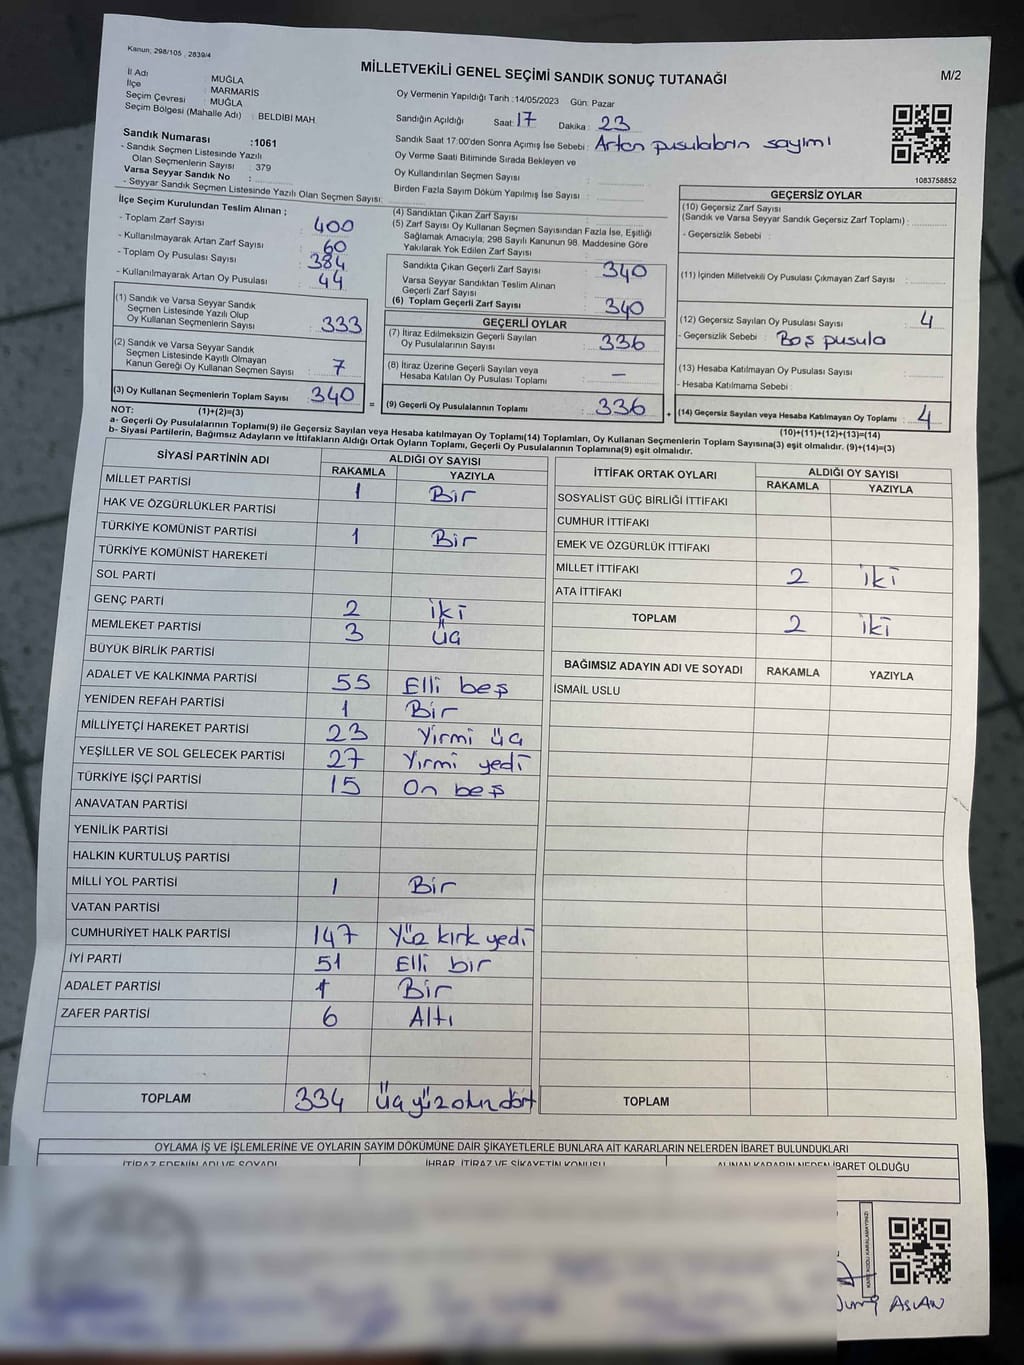 Kanun; 298/105 , 2839/4
MİLLETVEKİLİ GENEL SEÇİMİ SANDIK SONUÇ TUTANAĞI
M/2
İl Adı : MUĞLA
İlçe : MARMARİS
Seçim Çevresi : MUĞLA
Seçim Bölgesi (Mahalle Adı) : BELDİBİ MAH.
Oy Vermenin Yapıldığı Tarih :14/05/2023 Gün: Pazar
Sandığın Açıldığı Saat: 17 Dakika : 23
Sandık Saat 17:00'den Sonra Açımış İse Sebebi : Artan pusulaların sayımı
Oy Verme Saati Bitiminde Sırada Bekleyen ve
Oy Kullandırılan Seçmen Sayısı :
Birden Fazla Sayım Döküm Yapılmış İse Sayısı :
1083758852
Sandık Numarası :1061
- Sandık Seçmen Listesinde Yazılı
Olan Seçmenlerin Sayısı : 379
Varsa Seyyar Sandık No :
- Seyyar Sandık Seçmen Listesinde Yazılı Olan Seçmen Sayısı:
İlçe Seçim Kurulundan Teslim Alınan ;
- Toplam Zarf Sayısı : 400
- Kullanılmayarak Artan Zarf Sayısı : 60
- Toplam Oy Pusulası Sayısı : 384
- Kullanılmayarak Artan Oy Pusulası : 44
(1) Sandık ve Varsa Seyyar Sandık
Seçmen Listesinde Yazılı Olup
Oy Kullanan Seçmenlerin Sayısı : 333
(2) Sandık ve Varsa Seyyar Sandık
Seçmen Listesinde Kayıtlı Olmayan
Kanun Gereği Oy Kullanan Seçmen Sayısı : 7
(3) Oy Kullanan Seçmenlerin Toplam Sayısı : 340
(4) Sandıktan Çıkan Zarf Sayısı :
(5) Zarf Sayısı Oy Kullanan Seçmen Sayısından Fazla İse, Eşitliği
Sağlamak Amacıyla, 298 Sayılı Kanunun 98. Maddesine Göre
Yakılarak Yok Edilen Zarf Sayısı :
Sandıkta Çıkan Geçerli Zarf Sayısı : 340
Varsa Seyyar Sandıktan Teslim Alınan
Geçerli Zarf Sayısı :
(6) Toplam Geçerli Zarf Sayısı : 340
GEÇERLİ OYLAR
(7) İtiraz Edilmeksizin Geçerli Sayılan
Oy Pusulalarının Sayısı : 336
(8) İtiraz Üzerine Geçerli Sayılan veya
Hesaba Katılan Oy Pusulası Toplamı : –
= (9) Geçerli Oy Pusulalarının Toplamı : 336
GEÇERSİZ OYLAR
(10) Geçersiz Zarf Sayısı
(Sandık ve Varsa Seyyar Sandık Geçersiz Zarf Toplamı) :
- Geçersizlik Sebebi :
(11) İçinden Milletvekili Oy Pusulası Çıkmayan Zarf Sayısı :
(12) Geçersiz Sayılan Oy Pusulası Sayısı : 4
- Geçersizlik Sebebi : Boş pusula
(13) Hesaba Katılmayan Oy Pusulası Sayısı :
- Hesaba Katılmama Sebebi :
+ (14) Geçersiz Sayılan veya Hesaba Katılmayan Oy Toplamı : 4
NOT: (1)+(2)=(3)
(10)+(11)+(12)+(13)=(14)
a- Geçerli Oy Pusulalarının Toplamı(9) ile Geçersiz Sayılan veya Hesaba katılmayan Oy Toplamı(14) Toplamları, Oy Kullanan Seçmenlerin Toplam Sayısına(3) eşit olmalıdır. (9)+(14)=(3)
b- Siyasi Partilerin, Bağımsız Adayların ve İttifakların Aldığı Ortak Oyların Toplamı, Geçerli Oy Pusulalarının Toplamına(9) eşit olmalıdır.
SİYASİ PARTİNİN ADI ALDIĞI OY SAYISI
RAKAMLA YAZIYLA
MİLLET PARTİSİ 1 Bir
HAK VE ÖZGÜRLÜKLER PARTİSİ
TÜRKİYE KOMÜNİST PARTİSİ 1 Bir
TÜRKİYE KOMÜNİST HAREKETİ
SOL PARTİ
GENÇ PARTİ 2 iki
MEMLEKET PARTİSİ 3 üç
BÜYÜK BİRLİK PARTİSİ
ADALET VE KALKINMA PARTİSİ 55 Elli beş
YENİDEN REFAH PARTİSİ 1 Bir
MİLLİYETÇİ HAREKET PARTİSİ 23 Yirmi üç
YEŞİLLER VE SOL GELECEK PARTİSİ 27 Yirmi yedi
TÜRKİYE İŞÇİ PARTİSİ 15 On beş
ANAVATAN PARTİSİ
YENİLİK PARTİSİ
HALKIN KURTULUŞ PARTİSİ
MİLLİ YOL PARTİSİ 1 Bir
VATAN PARTİSİ
CUMHURİYET HALK PARTİSİ 147 Yüz kırk yedi
İYİ PARTİ 51 Elli bir
ADALET PARTİSİ 1 Bir
ZAFER PARTİSİ 6 Altı
TOPLAM 334 üç yüz otuz dört
İTTİFAK ORTAK OYLARI ALDIĞI OY SAYISI
RAKAMLA YAZIYLA
SOSYALİST GÜÇ BİRLİĞİ İTTİFAKI
CUMHUR İTTİFAKI
EMEK VE ÖZGÜRLÜK İTTİFAKI
MİLLET İTTİFAKI 2 iki
ATA İTTİFAKI
TOPLAM 2 iki
BAĞIMSIZ ADAYIN ADI VE SOYADI RAKAMLA YAZIYLA
İSMAİL USLU
TOPLAM
OYLAMA İŞ VE İŞLEMLERİNE VE OYLARIN SAYIM DÖKÜMÜNE DAİR ŞİKAYETLERLE BUNLARA AİT KARARLARIN NELERDEN İBARET BULUNDUKLARI
İTİRAZ EDENİN ADI VE SOYADI İHBAR, İTİRAZ VE ŞİKAYETİN KONUSU ALINAN KARARIN NEDEN İBARET OLDUĞU
ASLAN